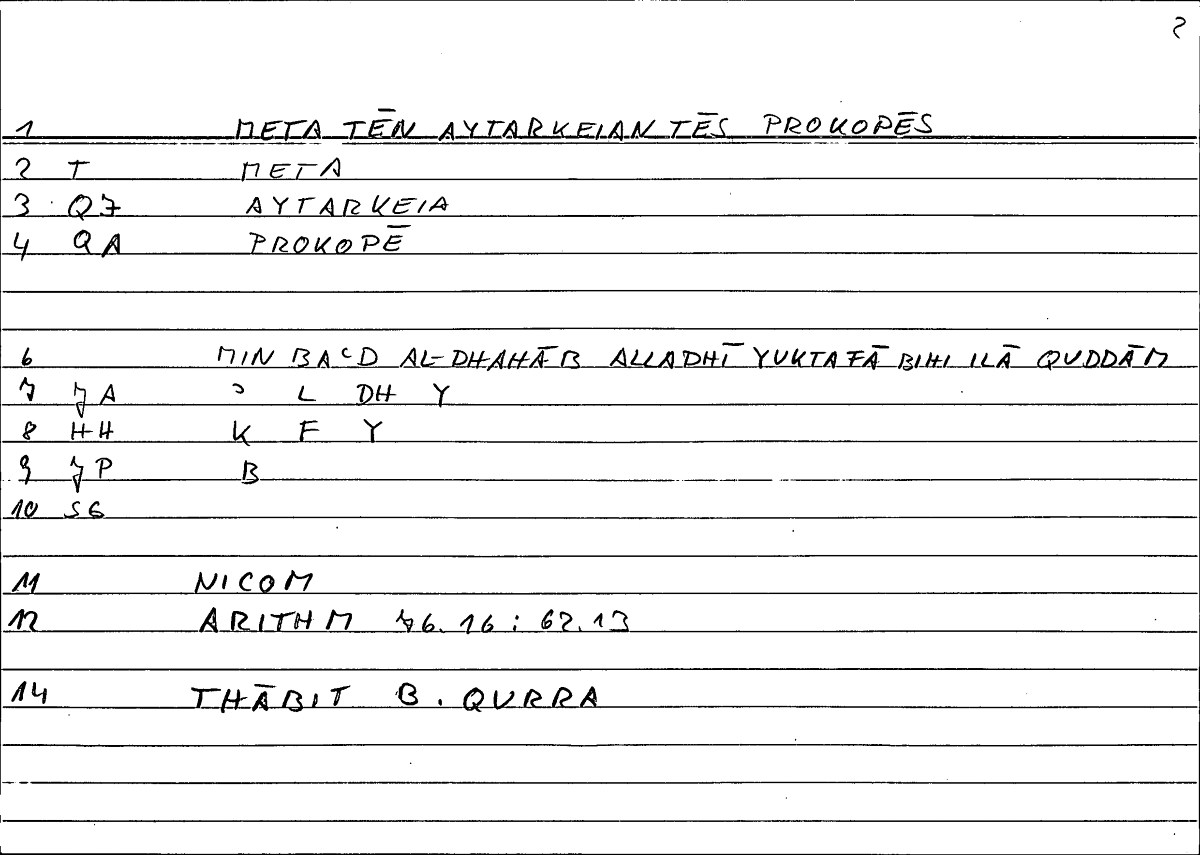 2
1 META TĒN AYTARKEIAN TĒS PROKOPĒS
2 T META
3 QJ AYTARKEIA
4 QA PROKOPĒ
6 MIN BAᶜD AL-DHAHĀB ALLADHĪ YUKTAFĀ BIHI ILĀ QUDDĀM
7 A ɔ L DH Y
8 HH K F Y
9 P B
10 SG
11 NICOM
12 ARITHM 46.16 : 62.13
14 THĀBIT B. QURRA